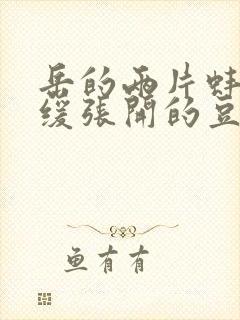 岳的两片蚌
缓张開的豆
鱼有有